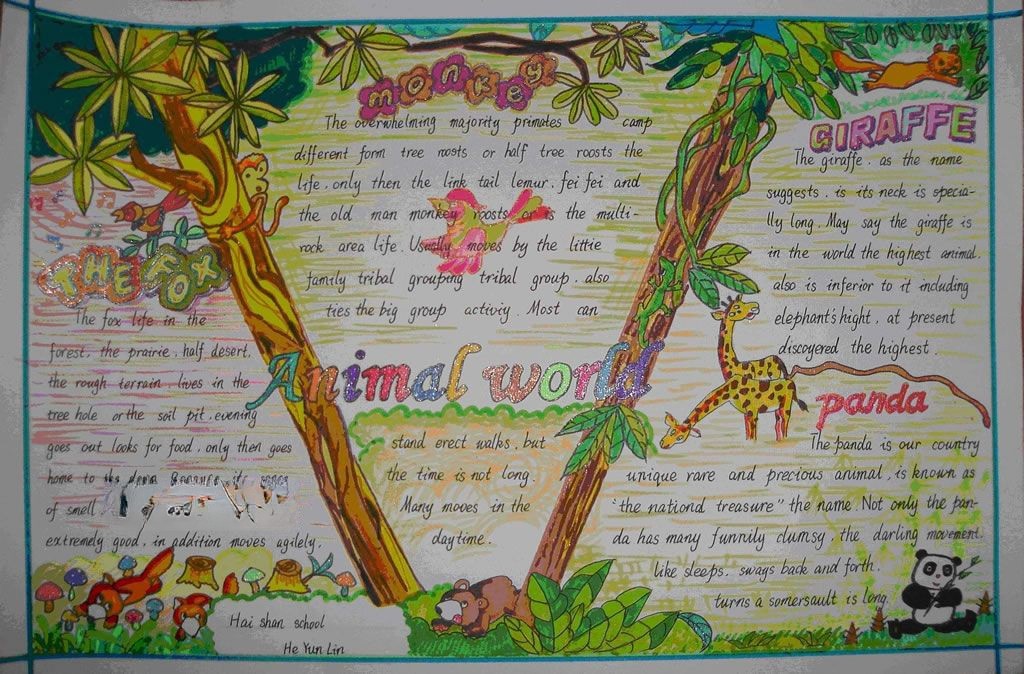 monkey
The overwhelming majority primates camp
different form tree roosts or half tree roosts the
life, only then the link tail lemur, fei fei and
the old man monkey roosts or is the multi-
rock area life. Usually moves by the little
family tribal grouping tribal group, also
ties the big group activiy. Most can
Animal world
stand erect walks, but
the time is not long.
Many moves in the
daytime.
THE FOX
The fox life in the
forest, the prairie, half desert,
the rough terrain, lives in the
tree hole or the soil pit, evening
goes out looks for food, only then goes
home to the
of smell
extremely good, in addition moves agilely.
Hai shan school
He Yun Lin
GIRAFFE
The giraffe, as the name
suggests, is its neck is specia-
lly long. May say the giraffe is
in the world the highest animal.
also is inferior to it including
elephant's hight, at present
discoyered the highest.
panda
The panda is our country
unique rare and precious animal, is known as
"the nationd treasure" the name. Not only the pan-
da has many funnily clumsy, the darling movement.
like sleeps, sways back and forth.
turns a somersault is long.